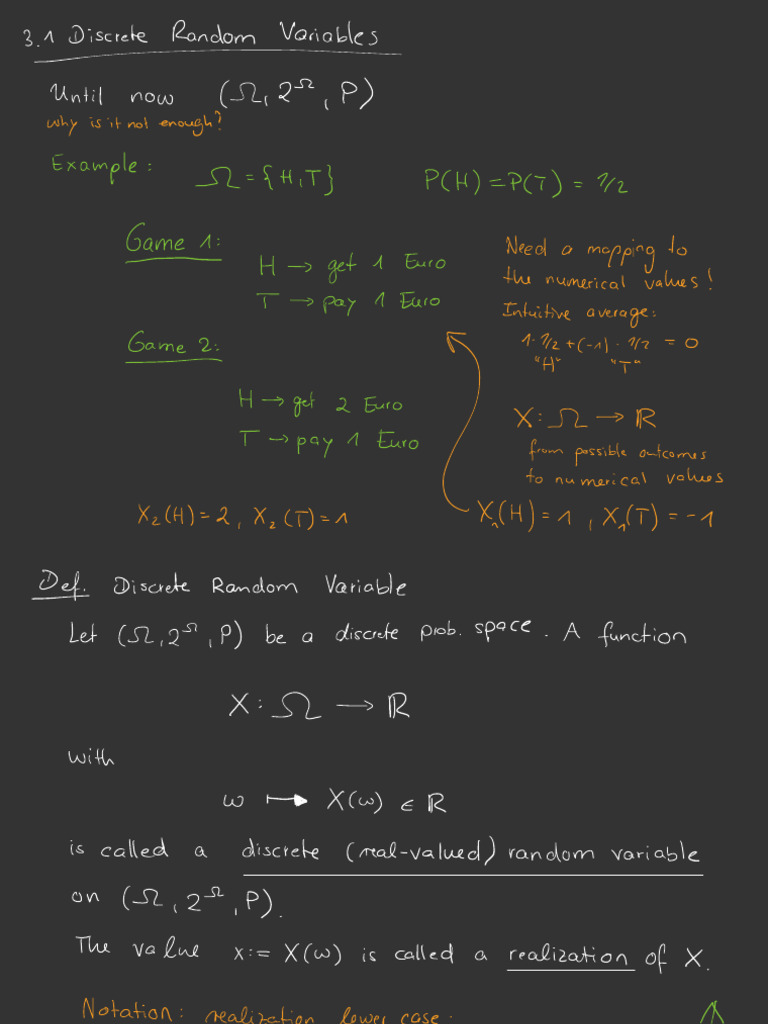 3.1 Discrete Random Variables
Until now (Ω, 2^Ω, P)
why is it not enough?
Example: Ω = {H, T} P(H) = P(T) = 1/2
Game 1:
H → get 1 Euro
T → pay 1 Euro
Need a mapping to
the numerical values!
Intuitive average:
1 · 1/2 + (-1) · 1/2 = 0
"H" "T"
Game 2:
H → get 2 Euro
T → pay 1 Euro
X : Ω → ℝ
from possible outcomes
to numerical values
X₂(H) = 2, X₂(T) = 1
X₁(H) = 1, X₁(T) = -1
Def. Discrete Random Variable
Let (Ω, 2^Ω, P) be a discrete prob. space. A function
X : Ω → ℝ
with
ω ↦ X(ω) ∈ ℝ
is called a discrete (real-valued) random variable
on (Ω, 2^Ω, P).
The value x := X(ω) is called a realization of X.
Notation: realization lower case.